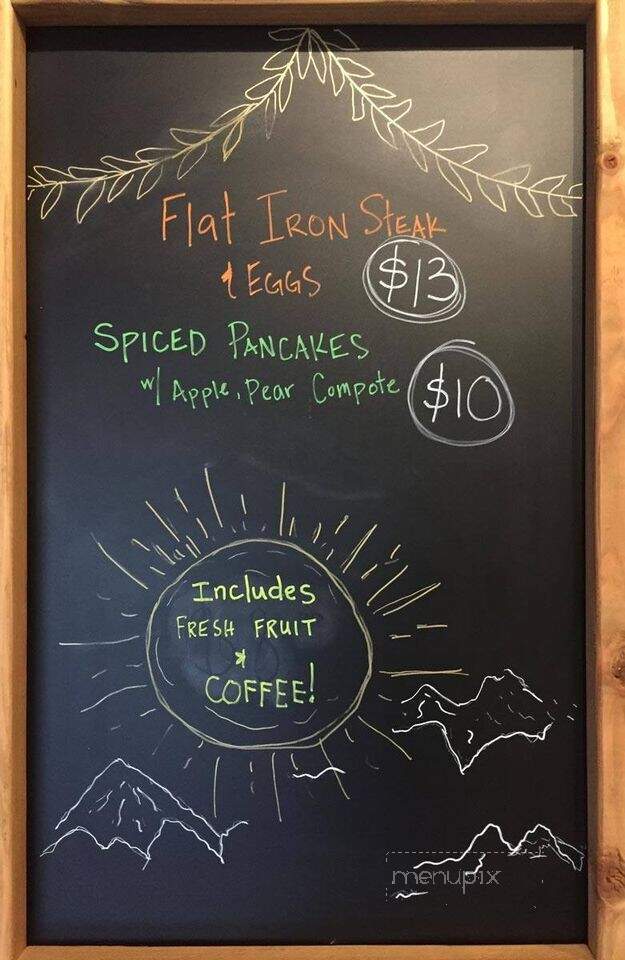 Flat IRON STEAK
& EGGS $13
SPICED PANCAKES
w/ Apple, Pear Compote $10
Includes
FRESH FRUIT
&
COFFEE!
menupix